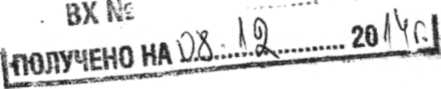 ВХ №
ПОЛУЧЕНО НА 08.12.2014г.